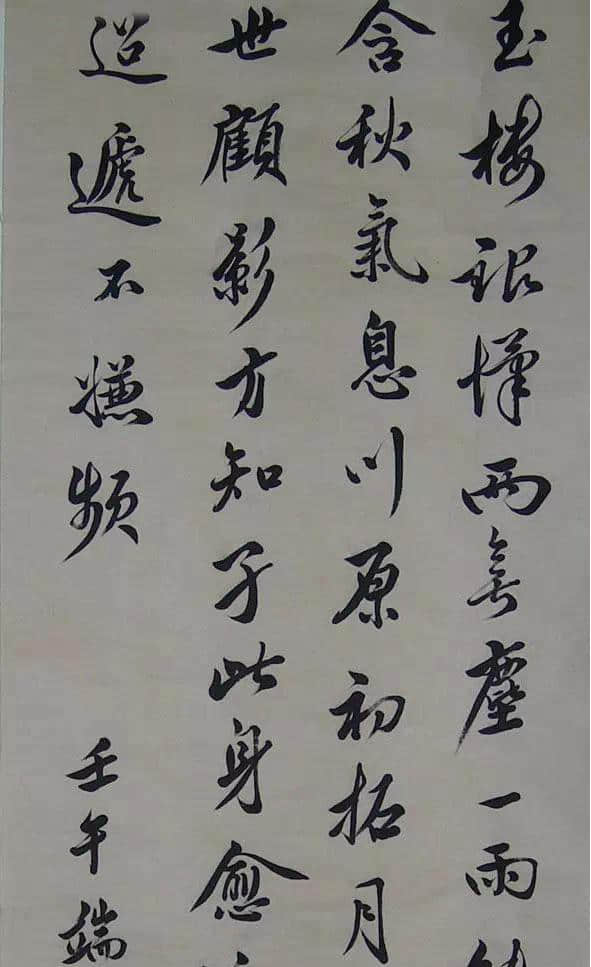 玉樓銀漢兩無塵一雨
含秋氣息川原初拓月
世顧影方知子此身愈
迢遞不嫌頻
壬午端